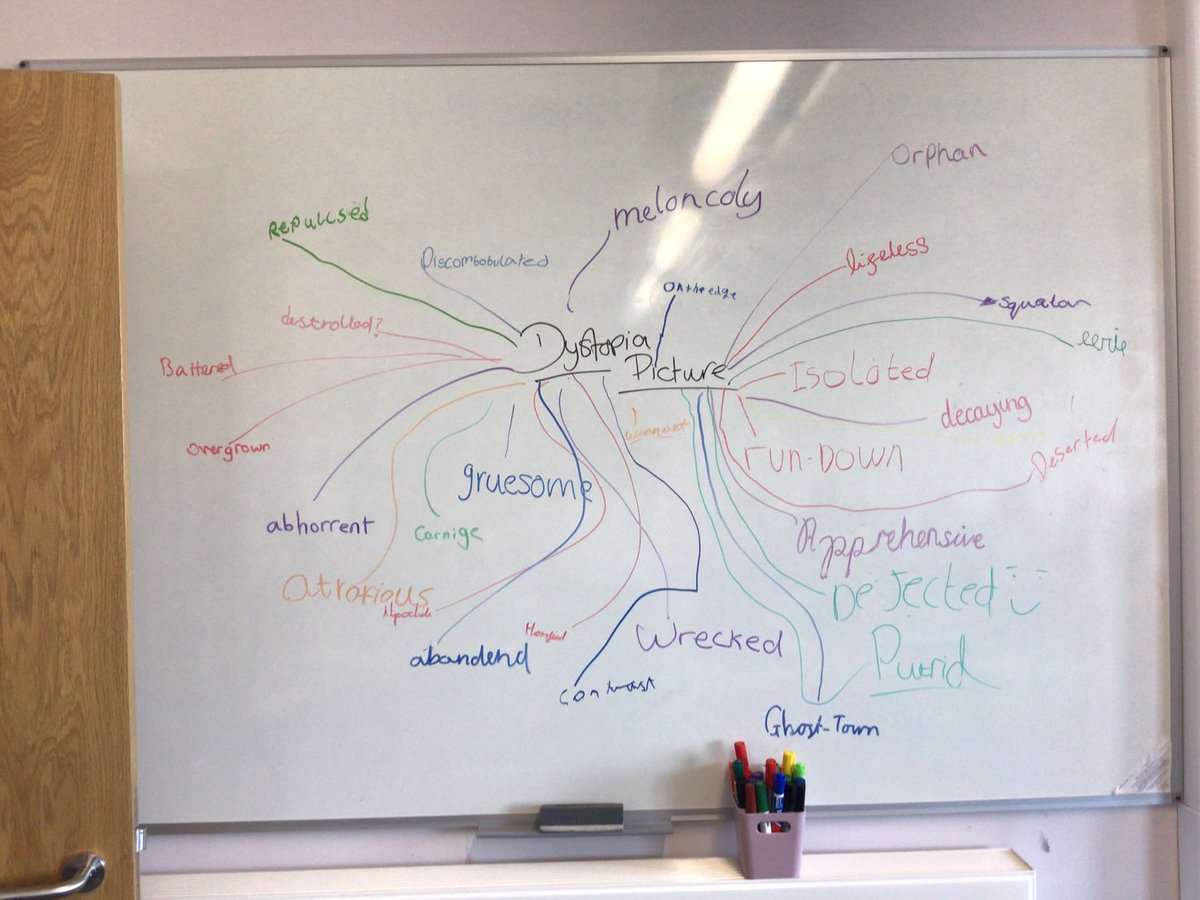 Orphan
meloncoly
Repulksed
Discombobulated
lifeless
On the edge
Squalar
destrolled?
Dystopia
eerie
Battered
Picture
Isolated
decaying
overgrown
run-Down
Deserted
gruesome
abhorrent
Carnige
Apprehensive
Atrofious
Dejected
Wrecked
abandend
Putrid
contrast
Ghost-Town